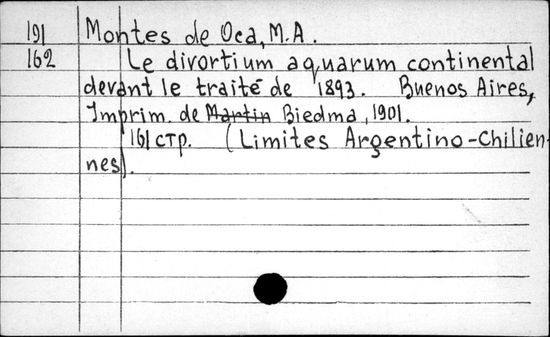 191 Montes de Oca, M.A.
162 Le divortium aquarum continental
devant le traité de 1893. Buenos Aires,
Imprim. de Martin Biedma, 1901.
161 стр. (Limites Argentino-Chilien-
nes).